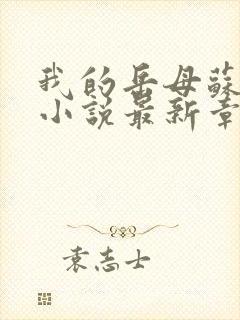 我的岳母蘇
小說最新章
袁志士